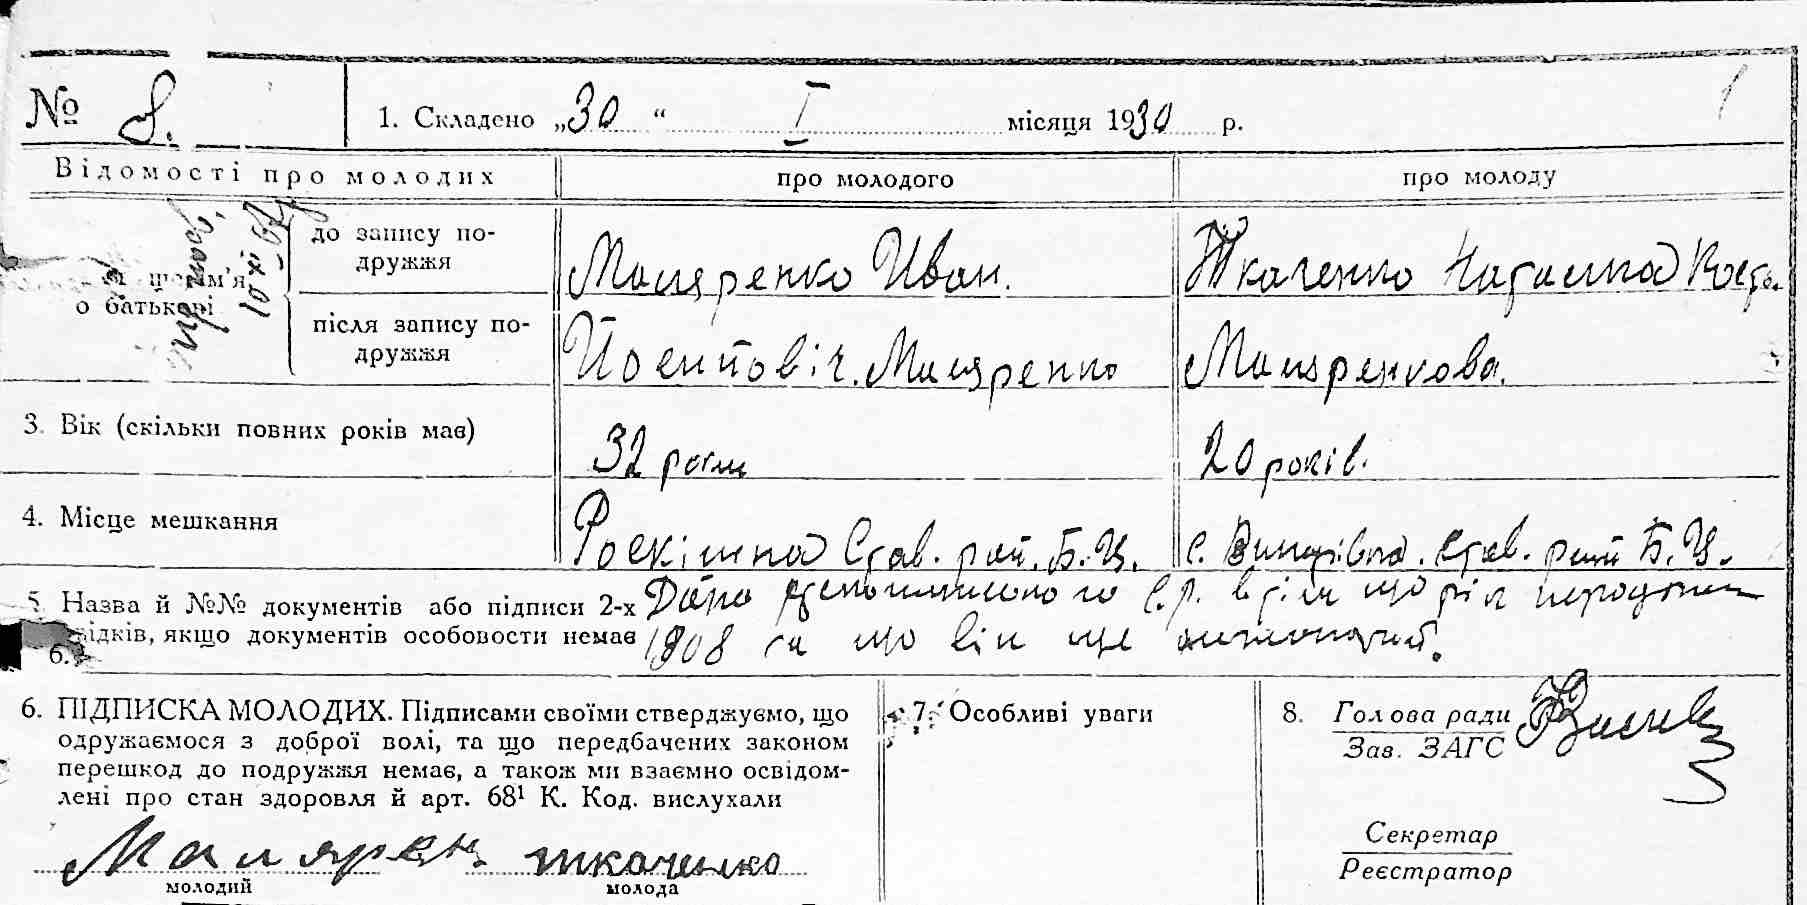 № 8. 1. Складено „30“ I місяця 1930 р.
Відомості про молодих про молодого про молоду
10 XI
м'я
о батькові
до запису по-
дружжя
Маляренко Иван. Ткаченко Наталка Кость.
після запису по-
дружжя
Йосипович. Маляренко Маляренкова.
3. Вік (скільки повних років має) 32 роки 20 років.
4. Місце мешкання Роскішна Став. рай. Б.Ц. с. Став. рай Б.Ц.
5. Назва й №№ документів або підписи 2-х
свідків, якщо документів особовости немає
Дана с.р. в тім що
1908 та що він ще
6.
6. ПІДПИСКА МОЛОДИХ. Підписами своїми стверджуємо, що
одружаємося з доброї волі, та що передбачених законом
перешкод до подружжя немає, а також ми взаємно освідом-
лені про стан здоровля й арт. 68¹ К. Код. вислухали
Малярен ткаченко
молодий молода
7. Особливі уваги
8. Голова ради
Зав. ЗАГС
Секретар
Реєстратор